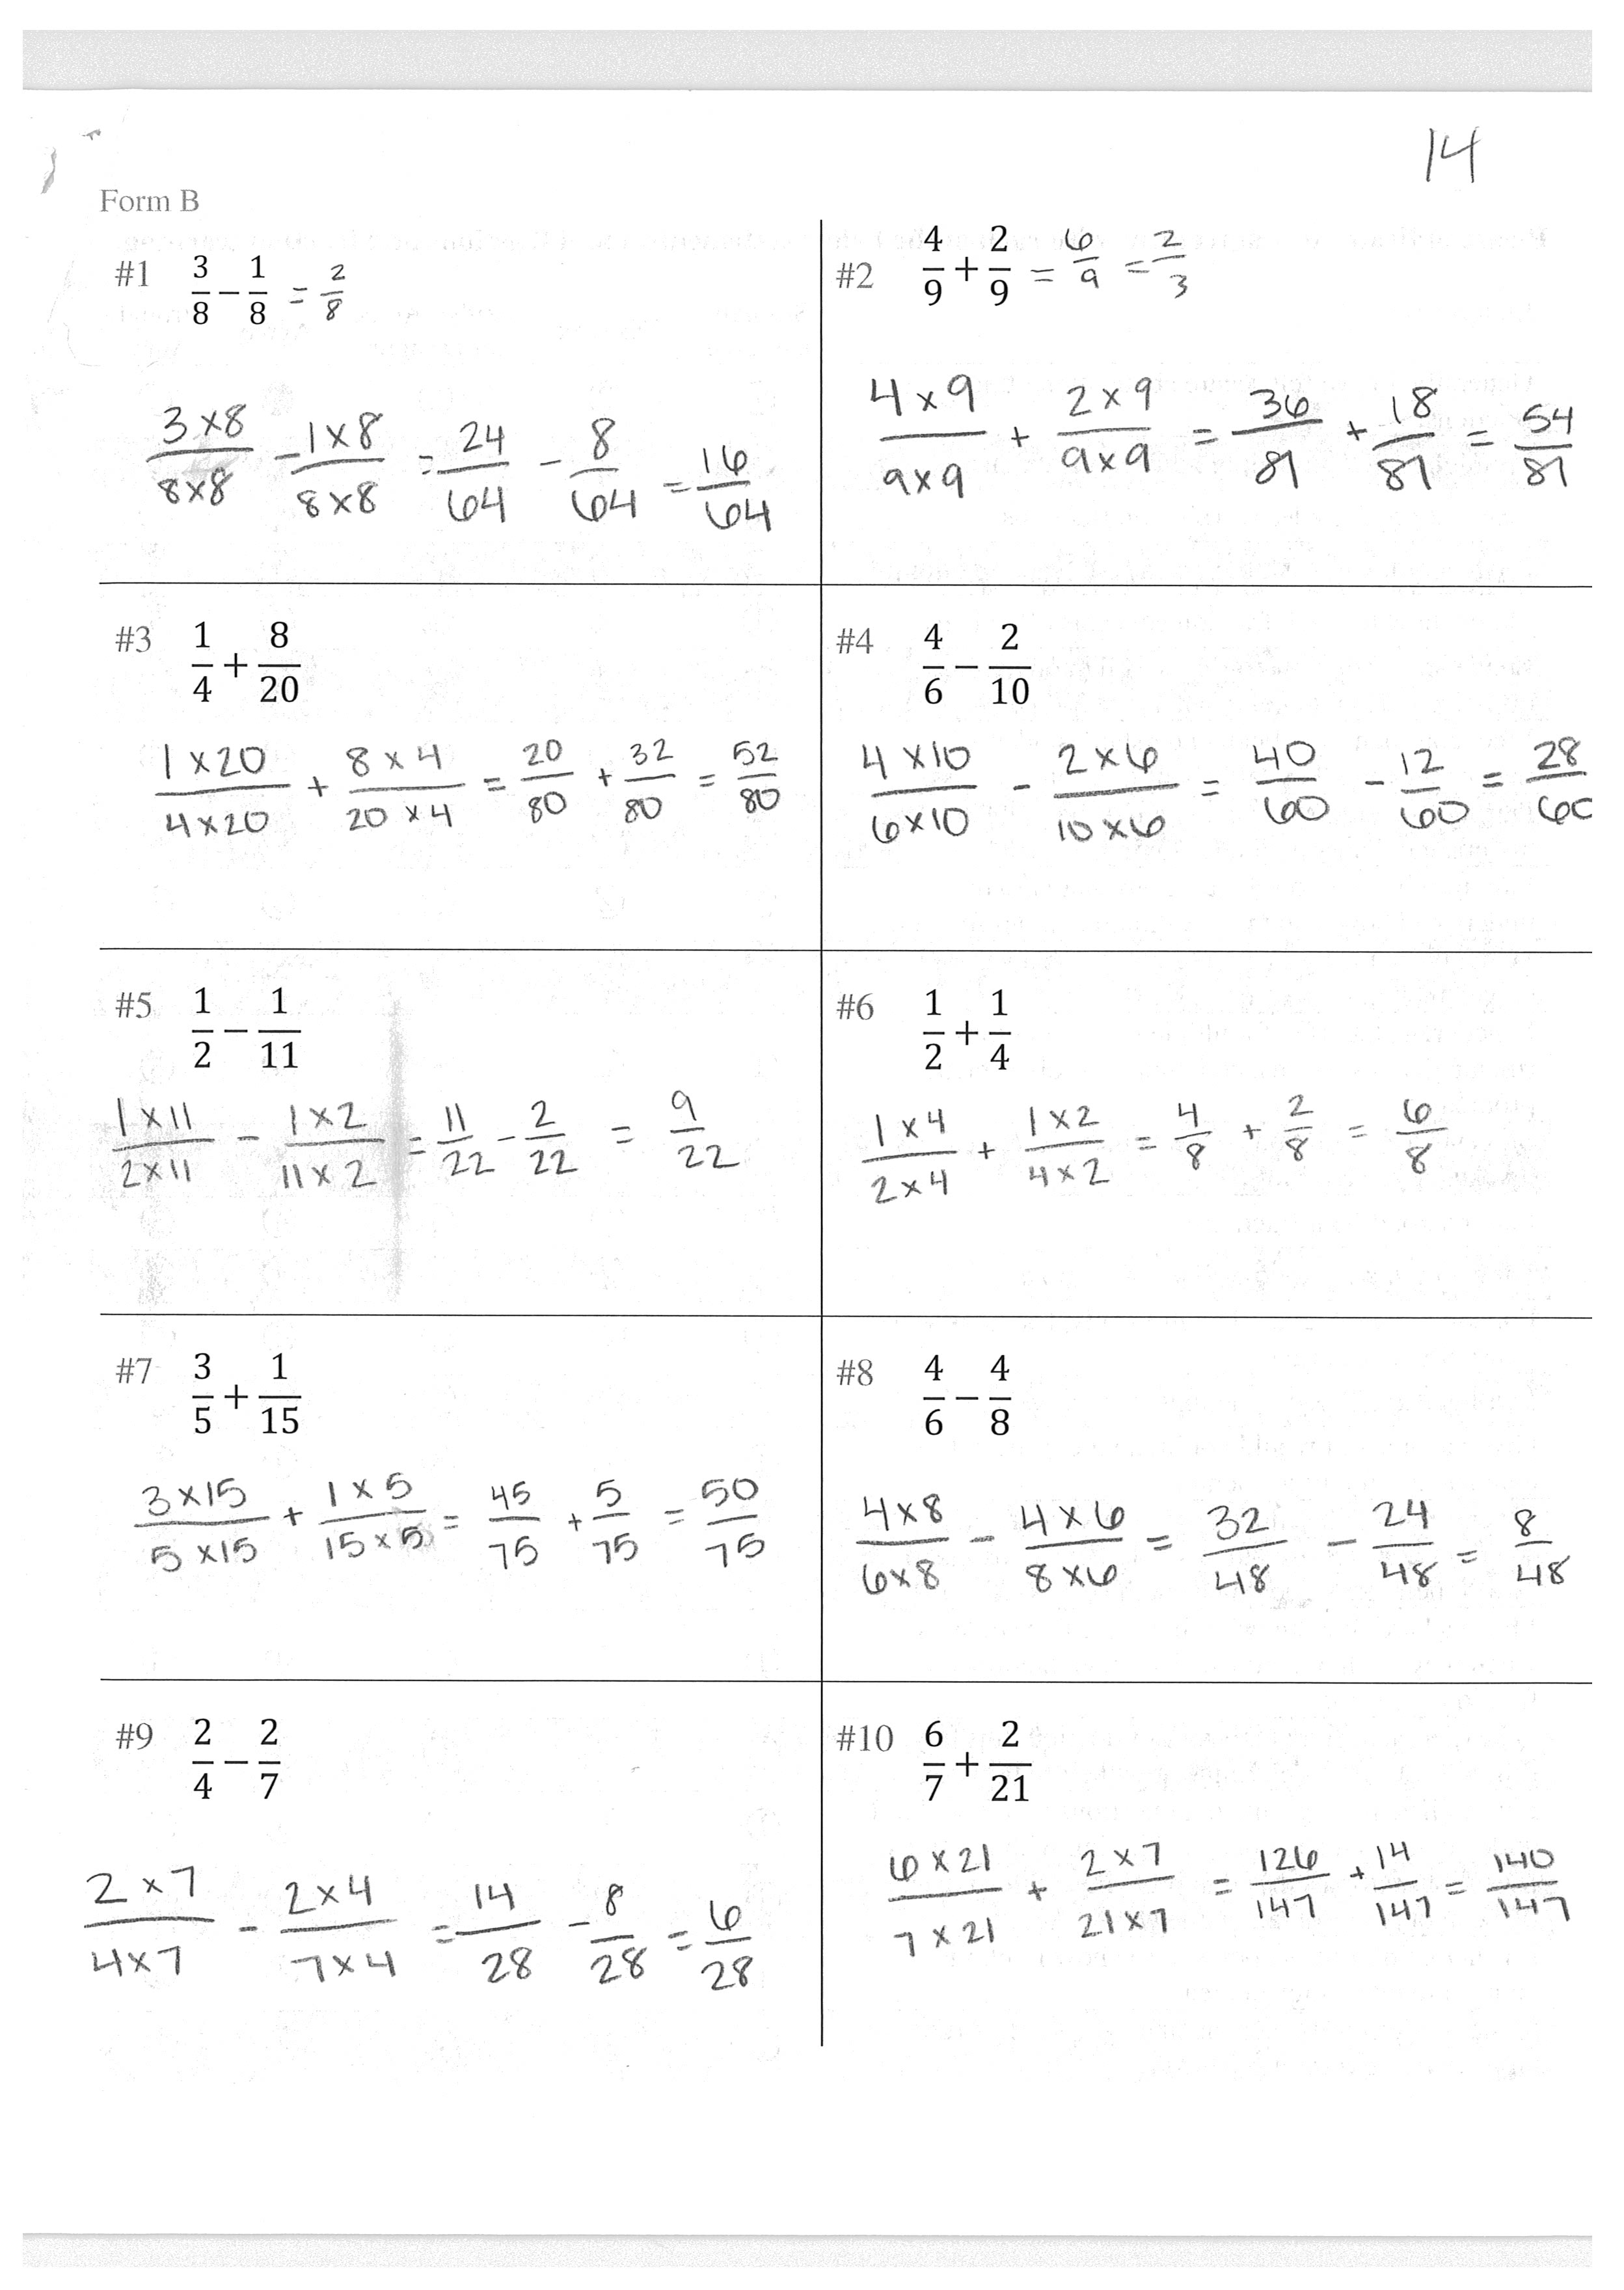 14
Form B
#1 3/8 − 1/8 = 2/8
3×8/8×8 − 1×8/8×8 = 24/64 − 8/64 = 16/64
#2 4/9 + 2/9 = 6/9 = 2/3
4×9/9×9 + 2×9/9×9 = 36/81 + 18/81 = 54/81
#3 1/4 + 8/20
1×20/4×20 + 8×4/20×4 = 20/80 + 32/80 = 52/80
#4 4/6 − 2/10
4×10/6×10 − 2×6/10×6 = 40/60 − 12/60 = 28/60
#5 1/2 − 1/11
1×11/2×11 − 1×2/11×2 = 11/22 − 2/22 = 9/22
#6 1/2 + 1/4
1×4/2×4 + 1×2/4×2 = 4/8 + 2/8 = 6/8
#7 3/5 + 1/15
3×15/5×15 + 1×5/15×5 = 45/75 + 5/75 = 50/75
#8 4/6 − 4/8
4×8/6×8 − 4×6/8×6 = 32/48 − 24/48 = 8/48
#9 2/4 − 2/7
2×7/4×7 − 2×4/7×4 = 14/28 − 8/28 = 6/28
#10 6/7 + 2/21
6×21/7×21 + 2×7/21×7 = 126/147 + 14/147 = 140/147